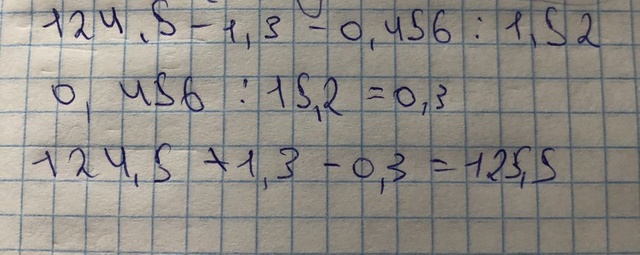 124,5 - 1,3 - 0,456 : 1,52
0,456 : 15,2 = 0,3
124,5 + 1,3 - 0,3 = 125,5